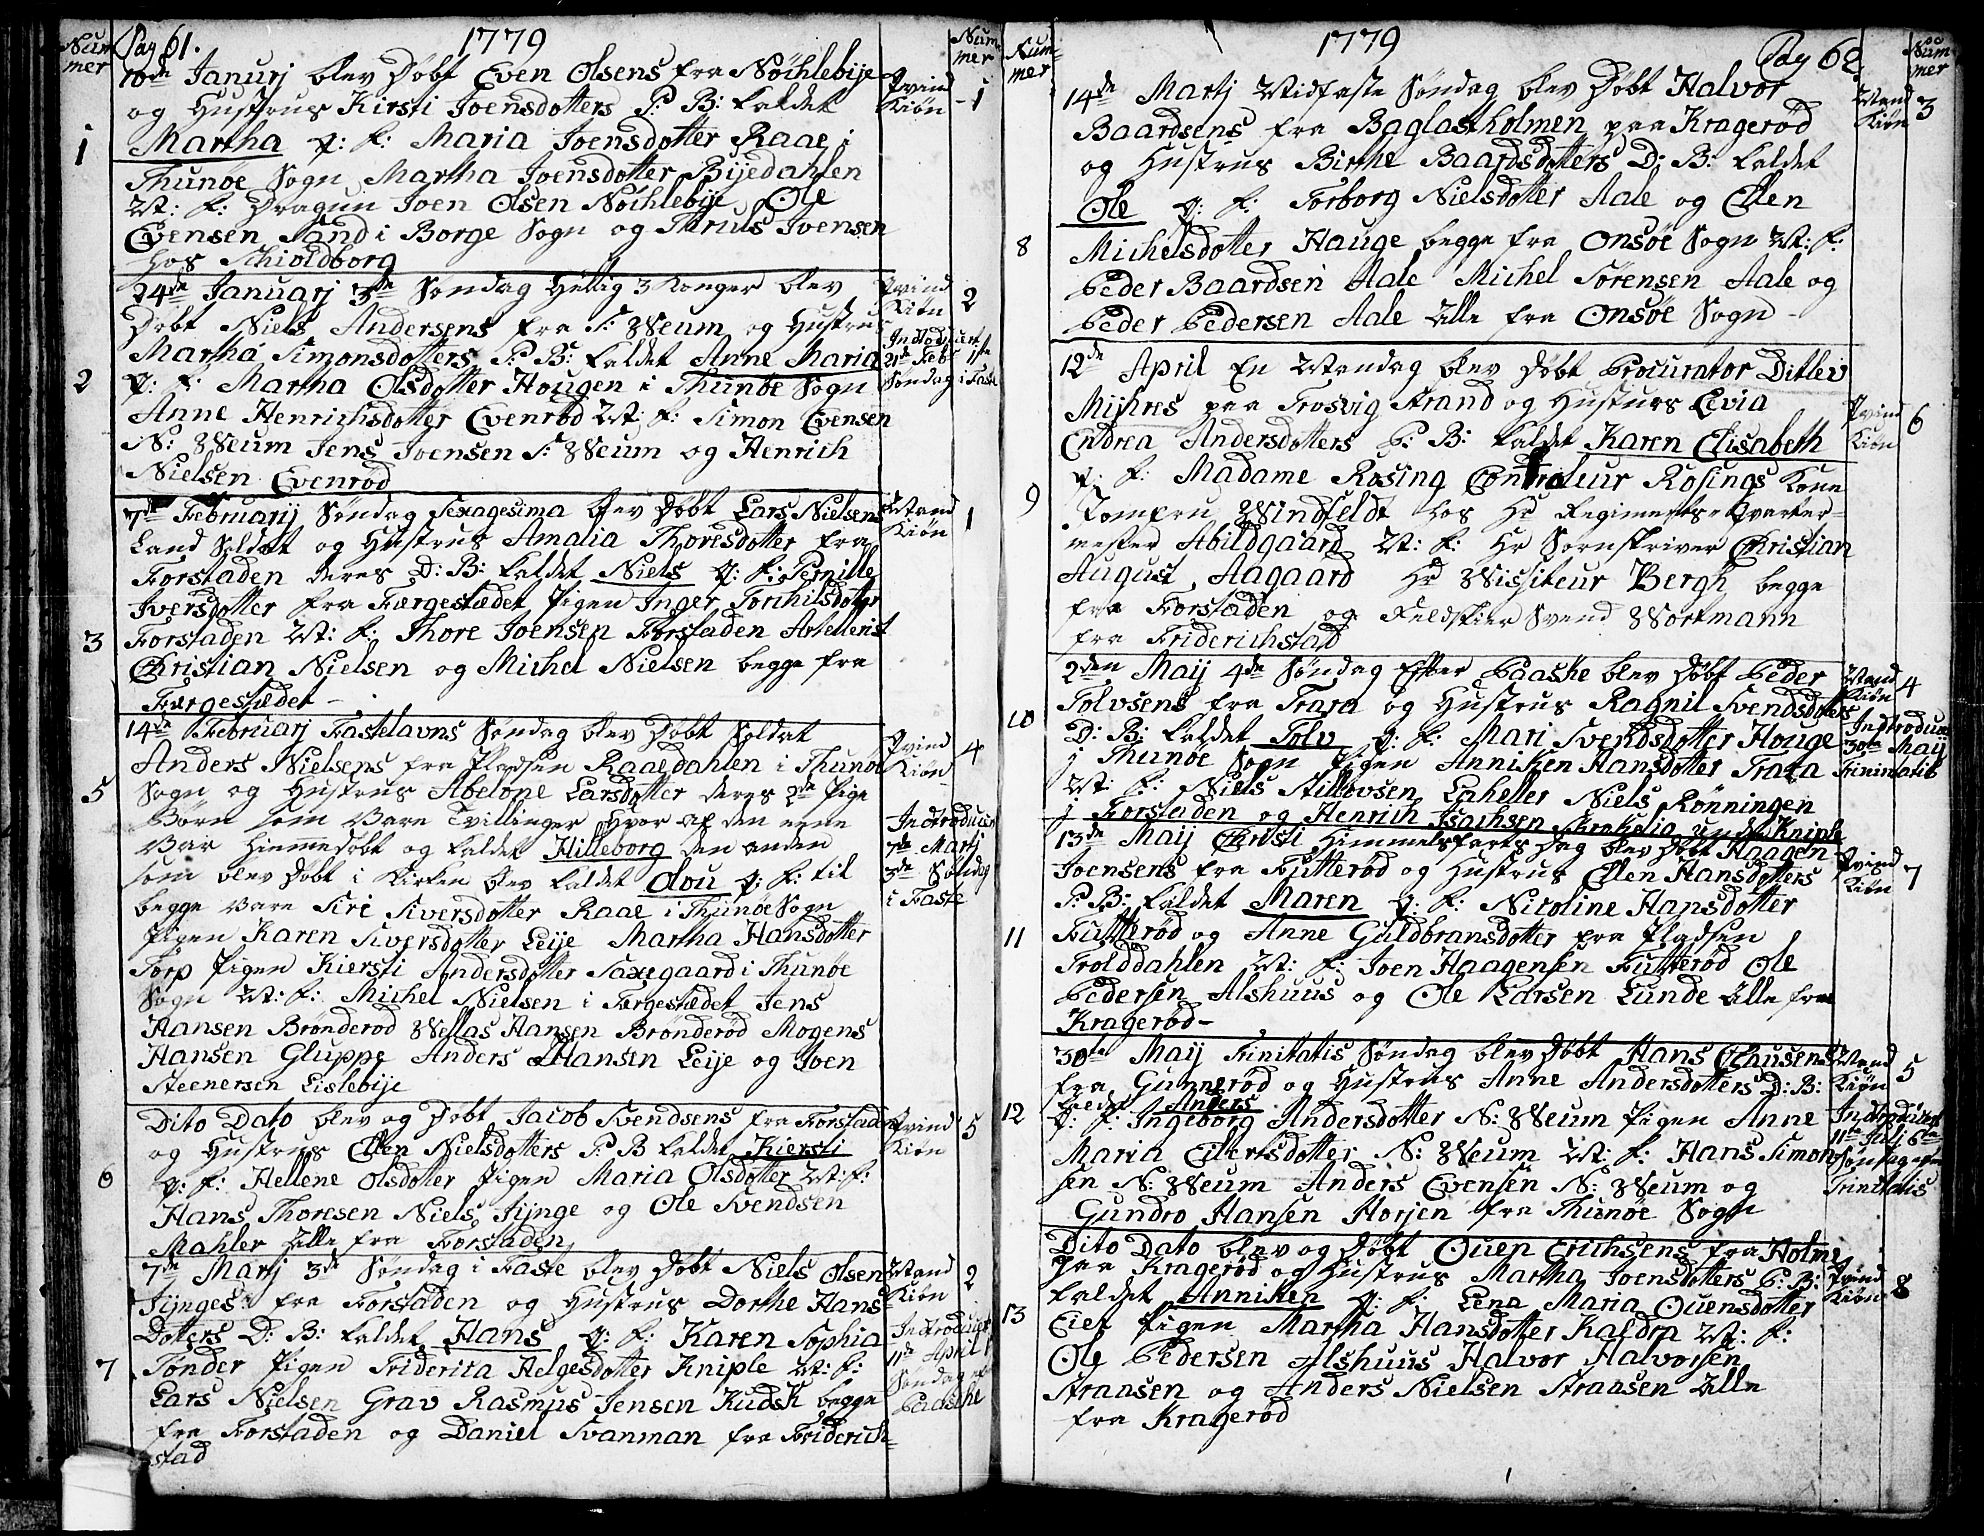 Nummer
Pag 61.
1779
Nummer
10de Januarj blev Døbt Even Olsens fra Nøihlebije
og Hustrus Kirsti Joensdotters P: B: kaldet
1
Martha q: f: Maria Joensdotter Raae i
Thunøe Sogn Martha Joensdotter Bijedahlen
M: f: Dragun Joen Olsen Nøihlebije Ole
Evensen Sand i Borge Sogn og Thruls Ivensen
hos Schioldborg
Qvind
Kiøn - 1
24de Januarj 3de Søndag Hellig 3 Konger blev
Døbt Niels Andersens fra S: Weum og Hustrus
Martha Simonsdotters P: B: kaldet Anne Maria
2
q: f: Martha Olsdotter Hougen i Thunøe Sogn
Anne Henrichsdotter Evenrød M: f: Simon Evensen
N: Weum Jens Joensen S: Weum og Henrich
Nielsen Evenrød
Qvind
Kiøn 2
Indtroducert
21de Febr 1ste
Søndag i Faste
7de Februarij Søndag Sexagesima blev Døbt Lars Nielsens
Land Soldat og Hustrus Amalia Thoresdotter fra
Forstaden deres D: B: kaldet Niels q: f: Pernille
Iversdotter fra Færgestædet Pigen Inger Torchilsdotter
3
Forstaden M: f: Thore Joensen Forstaden Artellerist
Christian Nielsen og Michel Nielsen begge fra
Færgestædet -
Mand
Kiøn 1
14de Februarj Fastelavns Søndag blev Døbt Soldat
Anders Nielsens fra Pladsen Raaedahlen i Thunøe
5
Sogn og Hustrus Abelone Larsdotter deres 2de Pige
Børn som vare Tvillinger hvor af den eene
var hiemmedøbt og kaldet Hilleborg den anden
som blev Døbt i Kirken blev kaldet Olou q: f: til
begge vare Siri Siversdotter Raae i Thunøe Sogn
Pigen Karen Siversdotter Leije Martha Hansdotter
Torp Pigen Kiersti Andersdotter Saxegaard i Thunøe
Sogn M: f: Michel Nielsen i Færgestædet Jens
Hansen Brønderød Wellas Hansen Brønderød Mogens
Hansen Gluppe Anders Hansen Leije og Joen
Steenersen Lislebije
Qvind
Kiøn 4
Indtroducert
7de Martj
3de Søndag
i Faste
Dito Dato blev og Døbt Jacob Svendsens fra Forstaden
og Hustrus Ellen Nielsdotters P: B kaldet Kiersti
6
q: f: Hellene Olsdotter Pigen Maria Olsdotter M: f:
Hans Thoresen Niels Jijnge og Ole Svendsen
Mahler alle fra Forstaden
Qvind
Kiøn 5
7de Martj 3de Søndag i Faste blev Døbt Niels Olsen
Jijnges fra Forstaden og Hustrus Dorthe Hans
Dotters D: B: kaldet Hans q: f: Karen Sophia
7
Tønder Pigen Friderica Helgesdotter Kniple M: f:
Lars Nielsen Grav Rasmus Jensen Kudsk begge
fra Forstaden og Daniel Svanman fra Friderich-
stad
Mand
Kiøn 2
Indtroducert
11te April
Søndag ef
Paasche
Nummer
1779
Pag 62
Nummer
14de Martj Midfaste Søndag blev Døbt Halvor
Baardsens fra Baglastholmen paa Kragerød
og Hustrus Birthe Baardsdotters D: B: kaldet
Ole q: f: Torborg Nielsdotter Aale og Ellen
8
Michelsdotter Hauge begge fra Onsøe Sogn M: f:
Peder Baardsen Aale Michel Sørensen Aale og
Peder Pedersen Aale alle fra Onsøe Sogn -
Mand
Kiøn 3
12de April En Mandag blev Døbt Procurator Ditlev
Mijhres paa Frosvig Strand og Husturs Levia
Endrea Andersdotters P: B: kaldet Karen Elisabeth
9
q: f: Madame Rosing Controleur Rosings Kone
Jomfru Windfeldt hos Hr Regiments-Qvarter-
mester Abildgaard M: f: Hr Sorenskriver Christian
August Aagaard Hr Wissiteur Bergh begge
fra Forstaden og Feldskier Svend Wortmann
fra Friderichstad
Qvind
Kiøn 6
2den Maij 4de Søndag Efter Paaske blev Døbt Peder
Tolvsens fra Trara og Hustrus Ragnil Svendsdotters
10
D: B: kaldet Tolv q: f: Mari Svendsdotter Houge
j Thunøe Sogn Pigen Anniken Hansdotter Trara
M: f: Niels Stillovsen Laheller Niels Rønningen
j Forstaden og Henrich Isachsen
Mand
Kiøn 4
Indtroducert
30te Maij
Trinitatis
13de Maij Christi Himmelfarts Dag blev Døbt Haagen
Joensens fra Futterød og Hustrus Ellen Hansdotters
P: B: kaldet Maren q: f: Nicoline Hansdotter
11
Futterød og Anne Guldbransdotter fra Pladsen
Trolddahlen M: f: Joen Haagensen Futterød Ole
Pedersen Alshuus og Ole Larsen Lunde alle fra
Kragerød -
Qvind
Kiøn 7
30te Maij Trinitatis Søndag blev Døbt Hans Clausens
fra Gunnerød og Hustrus Anne Andersdotters D: B:
kaldet Anders
12
q: f: Ingeborg Andersdotter N: Weum Pigen Anne
Maria Eilertsdotter N: Weum M: f: Hans Simon
sen N: Weum Anders Evensen N: Weum og
Gundro Hansen Horjen fra Thunøe Sogn
Mand
Kiøn 5
Indtroducert
11te Julj 6te
Søndag efter
Trinitatis
Dito Dato blev og Døbt Ouen Erichsens fra Holme
paa Kragerød og Hustrus Martha Joensdotters P: B:
kaldet Anniken q: f: Lena Maria Ouensdotter
13
Eiet Pigen Martha Hansdotter Kaldra M: f:
Ole Pedersen Alshuus Halvor Halvorsen
Straasen og Anders Nielsen Straasen alle
fra Kragerød
Qvind
Kiøn 8